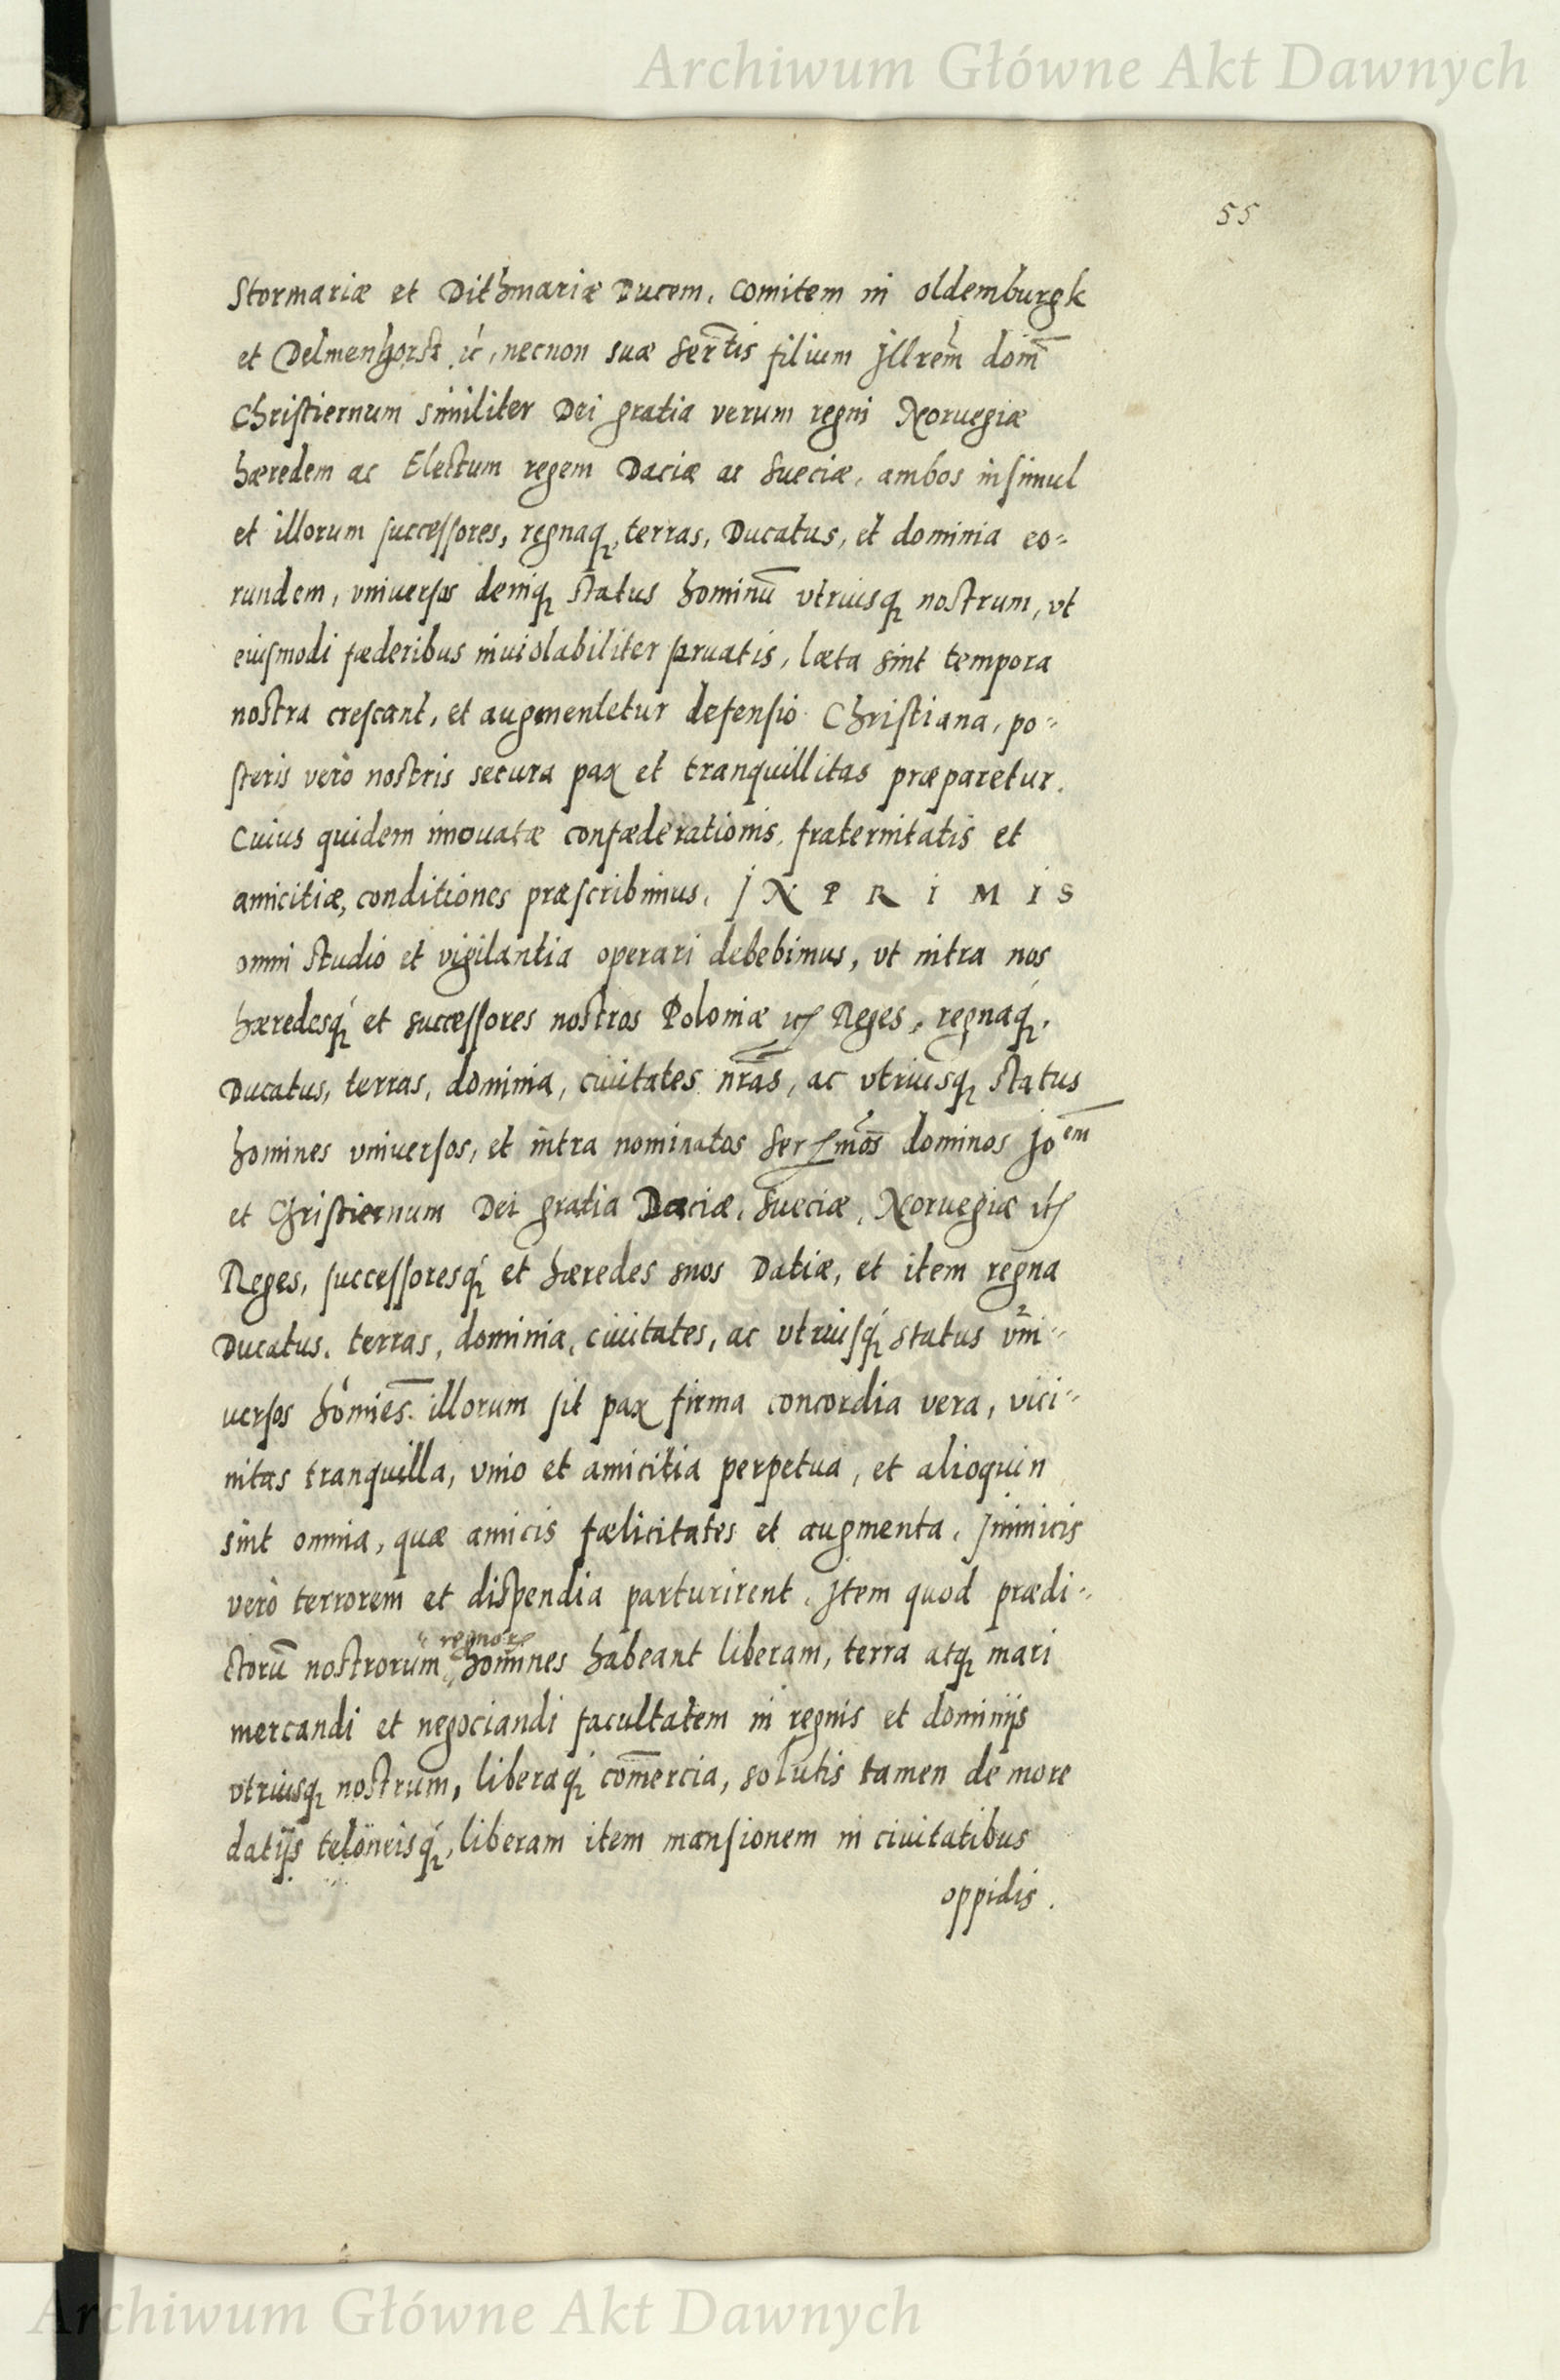 Archiwum Główne Akt Dawnych
55
Stormariæ et Dithmariæ Ducem, Comitem in oldemburgk
et Delmenhorst ꝛc, necnon suæ Sertis filium Jllrem dom̄
Christiernum similiter Dei gratia verum regni Noruegiæ
hæredem ac Electum regem Daciæ ac Sueciæ, ambos insimul
et illorum successores, regnaqꝫ, terras, Ducatus, et dominia eo=
rundem, vniuersos deniqꝫ status hominū vtriusqꝫ nostrum, vt
eiusmodi fæderibus inuiolabiliter seruatis, læta sint tempora
nostra crescant, et augmentetur defensio Christiana, po=
steris verò nostris secura pax et tranquillitas præparetur.
Cuius quidem innouatæ confæderationis, fraternitatis et
amicitiæ, conditiones præscribimus. JN PRIMIS
omni studio et vigilantia operari debebimus, vt intra nos
hæredesqꝫ et successores nostros Poloniæ ꝛc Reges, regnaqꝫ,
Ducatus, terras, dominia, ciuitates nrās, ac vtriusqꝫ status
homines vniuersos, et intra nominatos Sermōs dominos Joem
et Christiernum Dei gratia Daciæ, Sueciæ, Noruegiæ ꝛc
Reges, successoresqꝫ et hæredes suos Datiæ, et item regna
Ducatus, terras, dominia, ciuitates, ac vtriusqꝫ status vni=
uersos homīes illorum sit pax firma concordia vera, vici=
nitas tranquilla, vnio et amicitia perpetua, et alioquin
sint omnia, quæ amicis fælicitates et augmenta, Jnimicis
verò terrorem et dispendia parturirent. Jtem quod prædi=
ctorū nostrorum regnorꝫ homines habeant liberam, terra atqꝫ mari
mercandi et negociandi facultatem in regnis et dominijs
vtriusqꝫ nostrum, liberaqꝫ com̄ercia, solutis tamen de more
datijs teloneisqꝫ, liberam item mansionem in ciuitatibus
oppidis.
Archiwum Główne Akt Dawnych